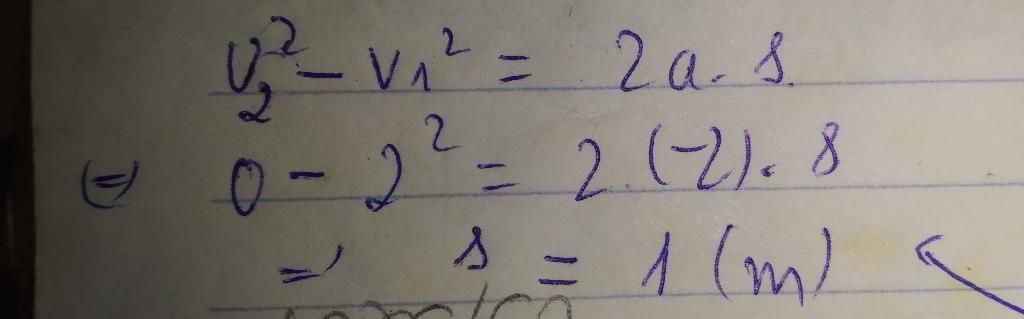 V₂² - V₁² = 2a. s.
(=) 0 - 2² = 2. (-2). s
=> s = 1 (m)